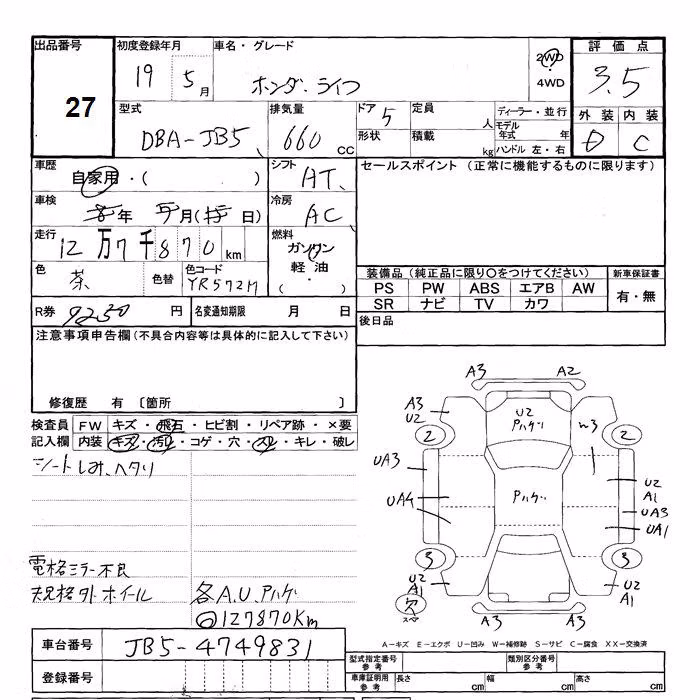 出品番号 27
初度登録年月 19 5月
車名・グレード ホンダ ライフ
2WD
4WD
評価点 3.5
型式 DBA-JB5
排気量 660 CC
ドア 5
形状
定員 人
積載 kg
ディーラー・並行
モデル年式 年
ハンドル 左・右
外装 内装
D C
車歴 自家用・( )
シフト AT
セールスポイント (正常に機能するものに限ります)
車検 年 月( 日)
冷房 AC
走行 12万7千870km
燃料 ガソリン
軽油
( )
色 茶
色替
色コード YR572M
装備品(純正品に限り〇をつけてください)
新車保証書
PS PW ABS エアB AW
SR ナビ TV カワ
有・無
R券 9250 円
名変通知期限 月 日
後日品
注意事項申告欄(不具合内容等は具体的に記入して下さい)
修復歴 有 〔箇所 〕
検査員記入欄
FW キズ・飛石・ヒビ割・リペア跡・×要
内装 キズ・汚レ・コゲ・穴・スレ・キレ・破レ
シートしみ、ヘタリ
電格ミラー不良
規格外ホイール
各A.U.ハゲ
127870Km
A3 A2
A3
U2
U2
Pハゲ
2 2
UA3
UA4
Pハゲ
U2
A1
UA3
UA1
3 3
U2
A1
欠
スペア
U2
A1
A3 A3
A―キズ E―エクボ U―凹み W―補修跡 S―サビ C―腐食 XX―交換済
車台番号 JB5-4749831
登録番号
型式指定番号 参考
類別区分番号 参考
車庫証明用 参考
長さ cm
幅 cm
高さ cm